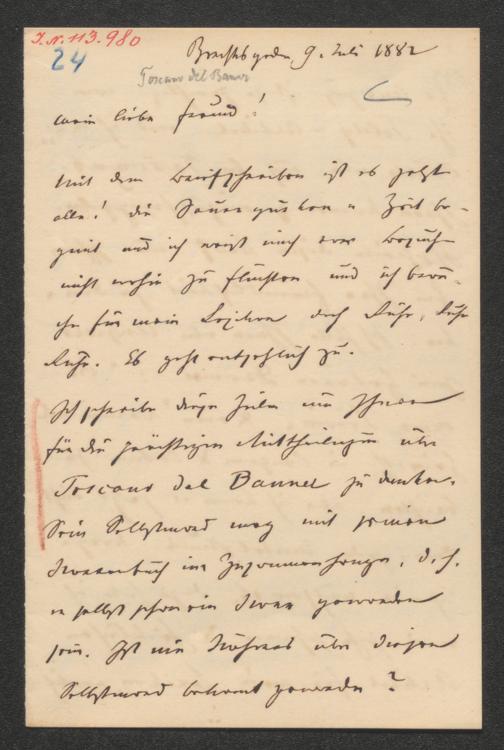 I.N. 113.980
24
Berchtsgaden, 9. Juli 1882
Toscano del Banner
Mein lieber Freund!
Mit dem Briefschreiben ist es jetzt
alle! die Sauregurken Zeit be-
ginnt und ich weiß mich vor Besuch
nicht wohin zu flüchten und ich brau-
che für mein Lexikon doch Ruhe, Ruhe
Ruhe. Es geht entsetzlich zu.
Ich schreibe diese Zeilen um Ihnen
für die prächtigen Mittheilungen über
Toscano del Banner zu danken.
Sein Selbstmord mag mit seinem
im Zusammenhange, d. h.
er selbst schon ein geworden
sein. Ist nie Näheres über diesen
Selbstmord bekannt geworden?